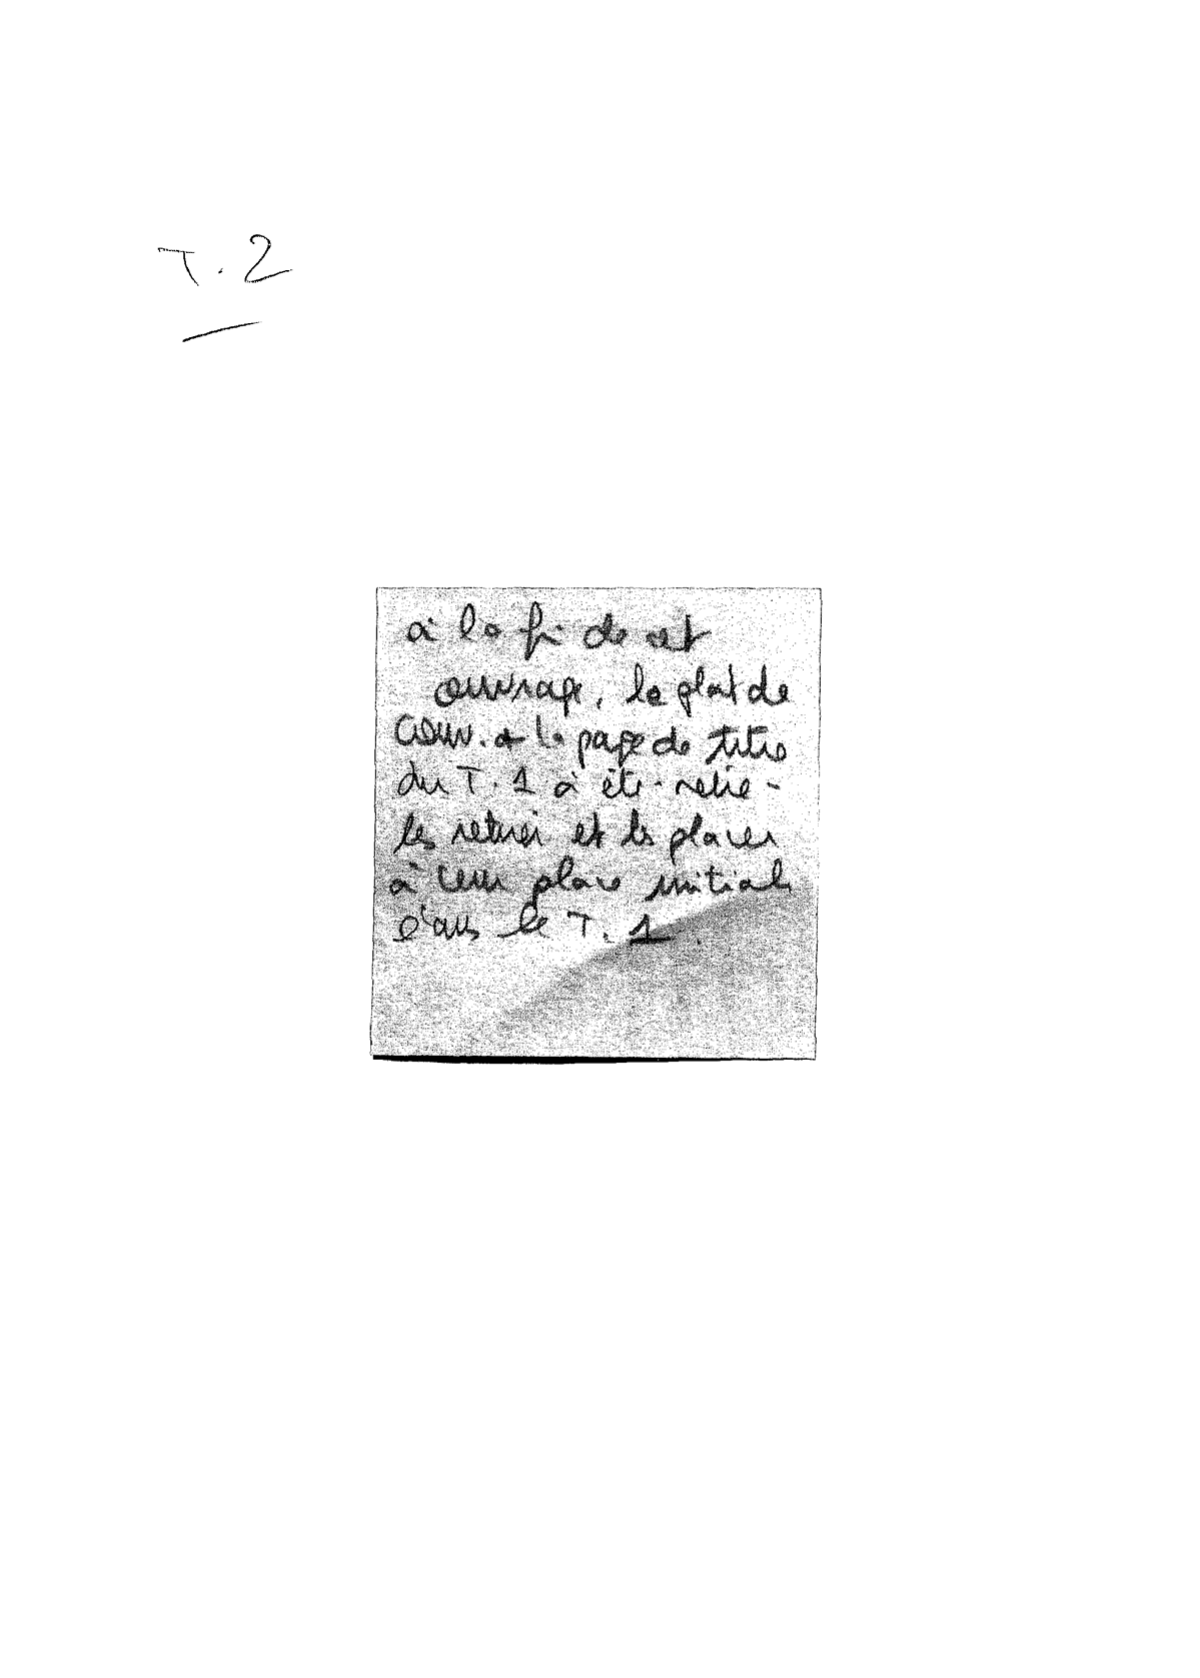 T. 2
à la fin de cet
ouvrage, le plat de
couv. + la page de titre
du T. 1 a été relié -
les retirer et les placer
à leur place initiale
dans le T. 1.